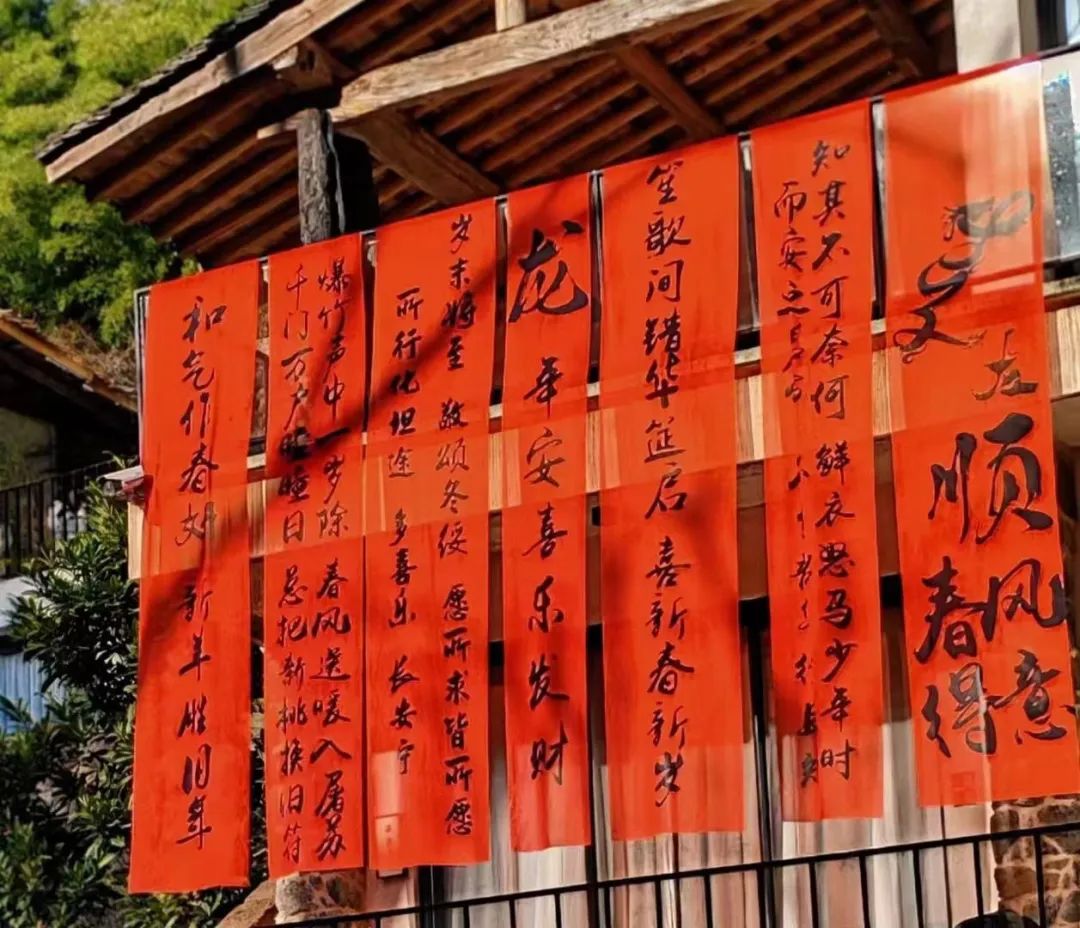 顺风意
春得
知其不可奈何 鲜衣怒马少年时
而安之
笙歌间错华筵启 喜新春新岁
龙年安喜乐发财
岁末将至 敬颂冬绥 愿所求皆所愿
所行化坦途 多喜乐 长安宁
爆竹声中一岁除 春风送暖入屠苏
千门万户曈曈日 总把新桃换旧符
和气作春妍 新年胜旧年